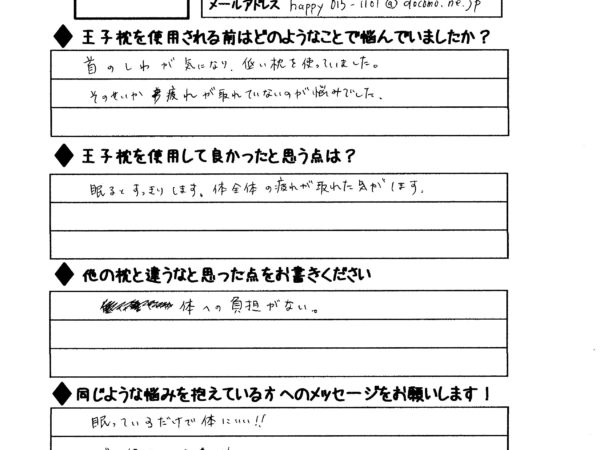 メールアドレス happy 015-1101@docomo.ne.jp
◆王子枕を使用される前はどのようなことで悩んでいましたか?
首のしわが気になり、低い枕を使っていました。
そのせいか疲れが取れていないのが悩みでした、
◆王子枕を使用して良かったと思う点は?
眠るとすっきりします。体全体の疲れが取れた気がします.
◆他の枕と違うなと思った点をお書きください
体への負担がない。
◆同じような悩みを抱えている方へのメッセージをお願いします!
眠っているだけで体にいい!!